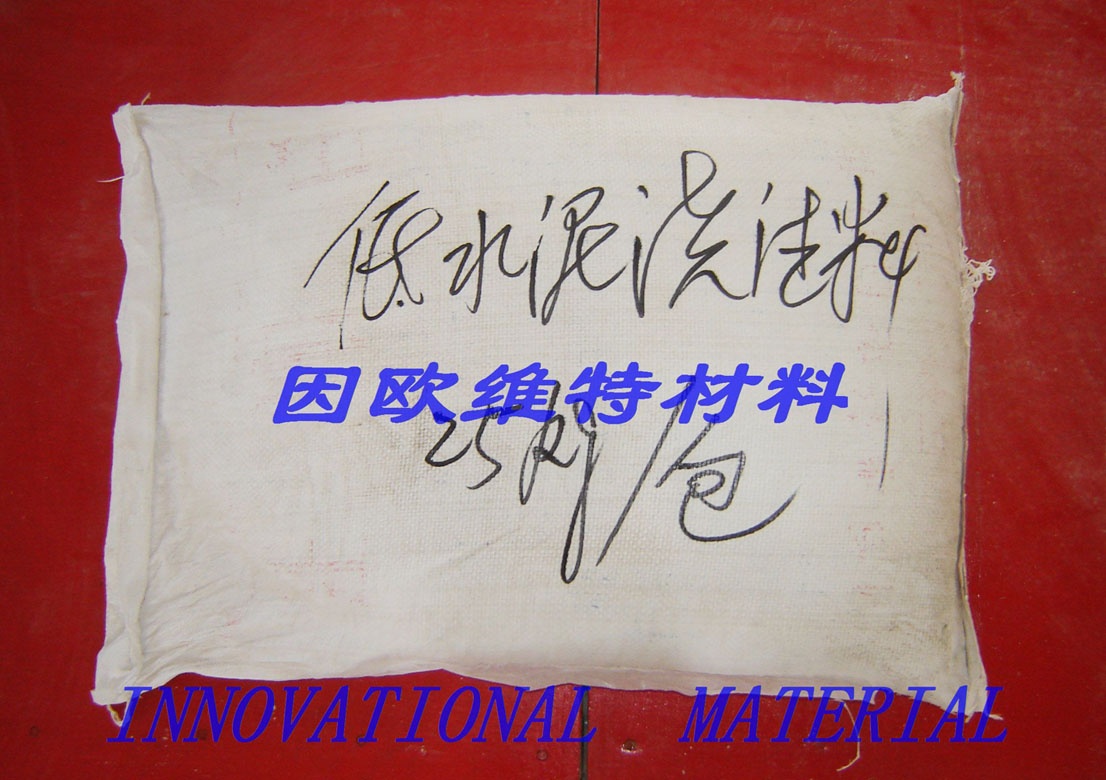 低水泥浇注料
因欧维特材料
25kg/包
INNOVATIONAL MATERIAL